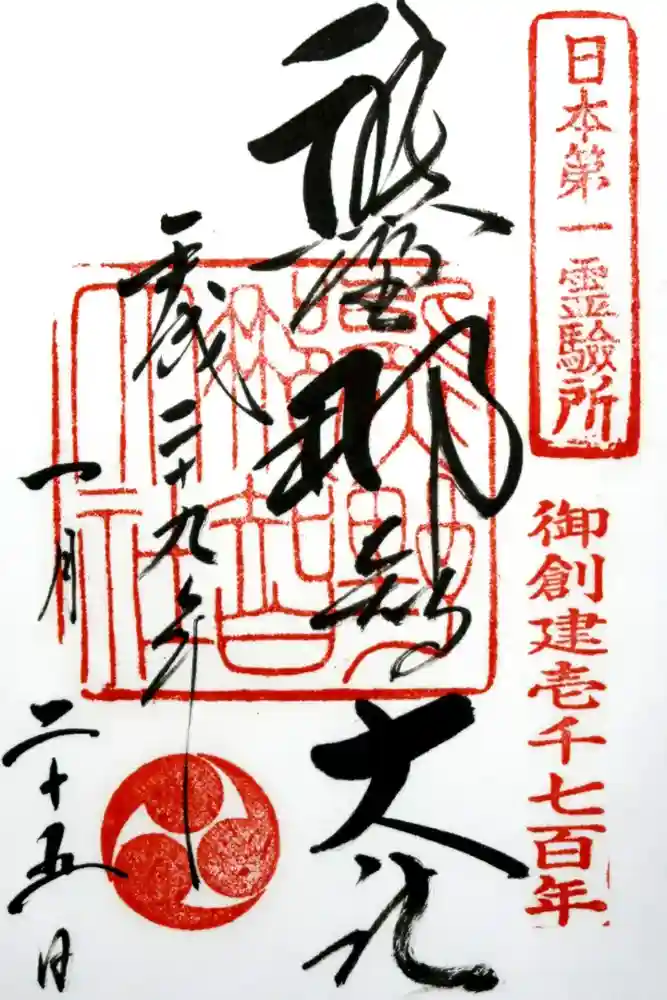 日本第一霊驗所
御創建壱千七百年
熊野那智大社
平成二十九年
一月
二十五日